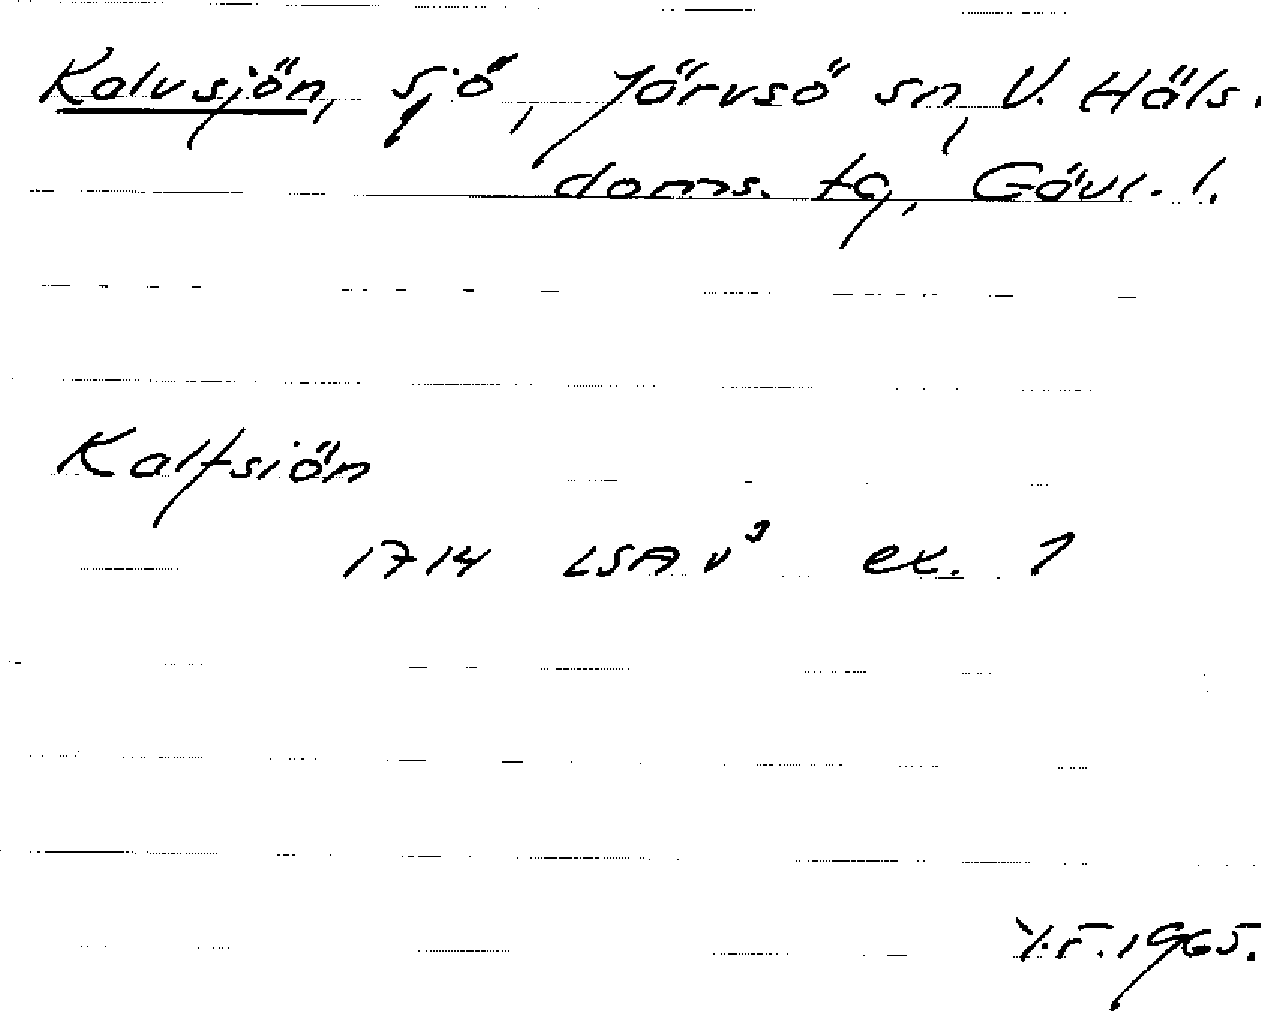 Kalvsjön, sjö, Järvsö sn, V. Häls.
doms. tg, Gävl. l.
Kalfsiön
1714 LSA v³ ex. 1
1965.